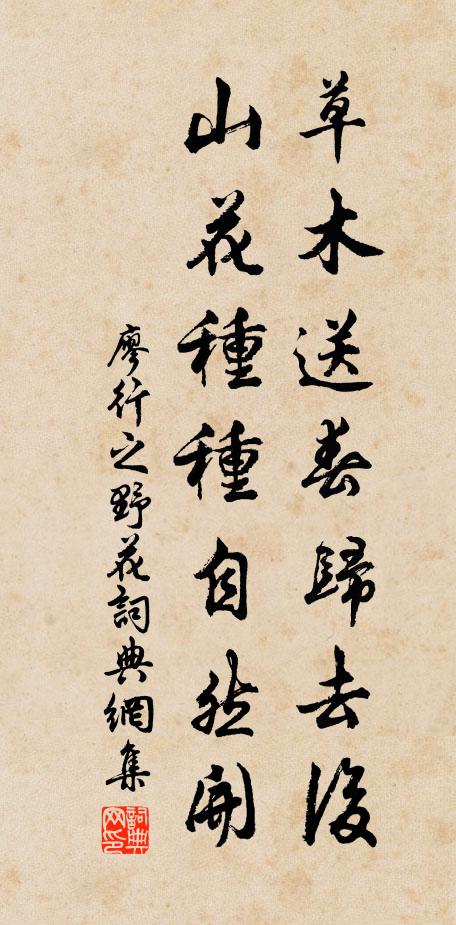 草木送春歸去後
山花種種自然開
廖行之野花詞典網集
詞典網印